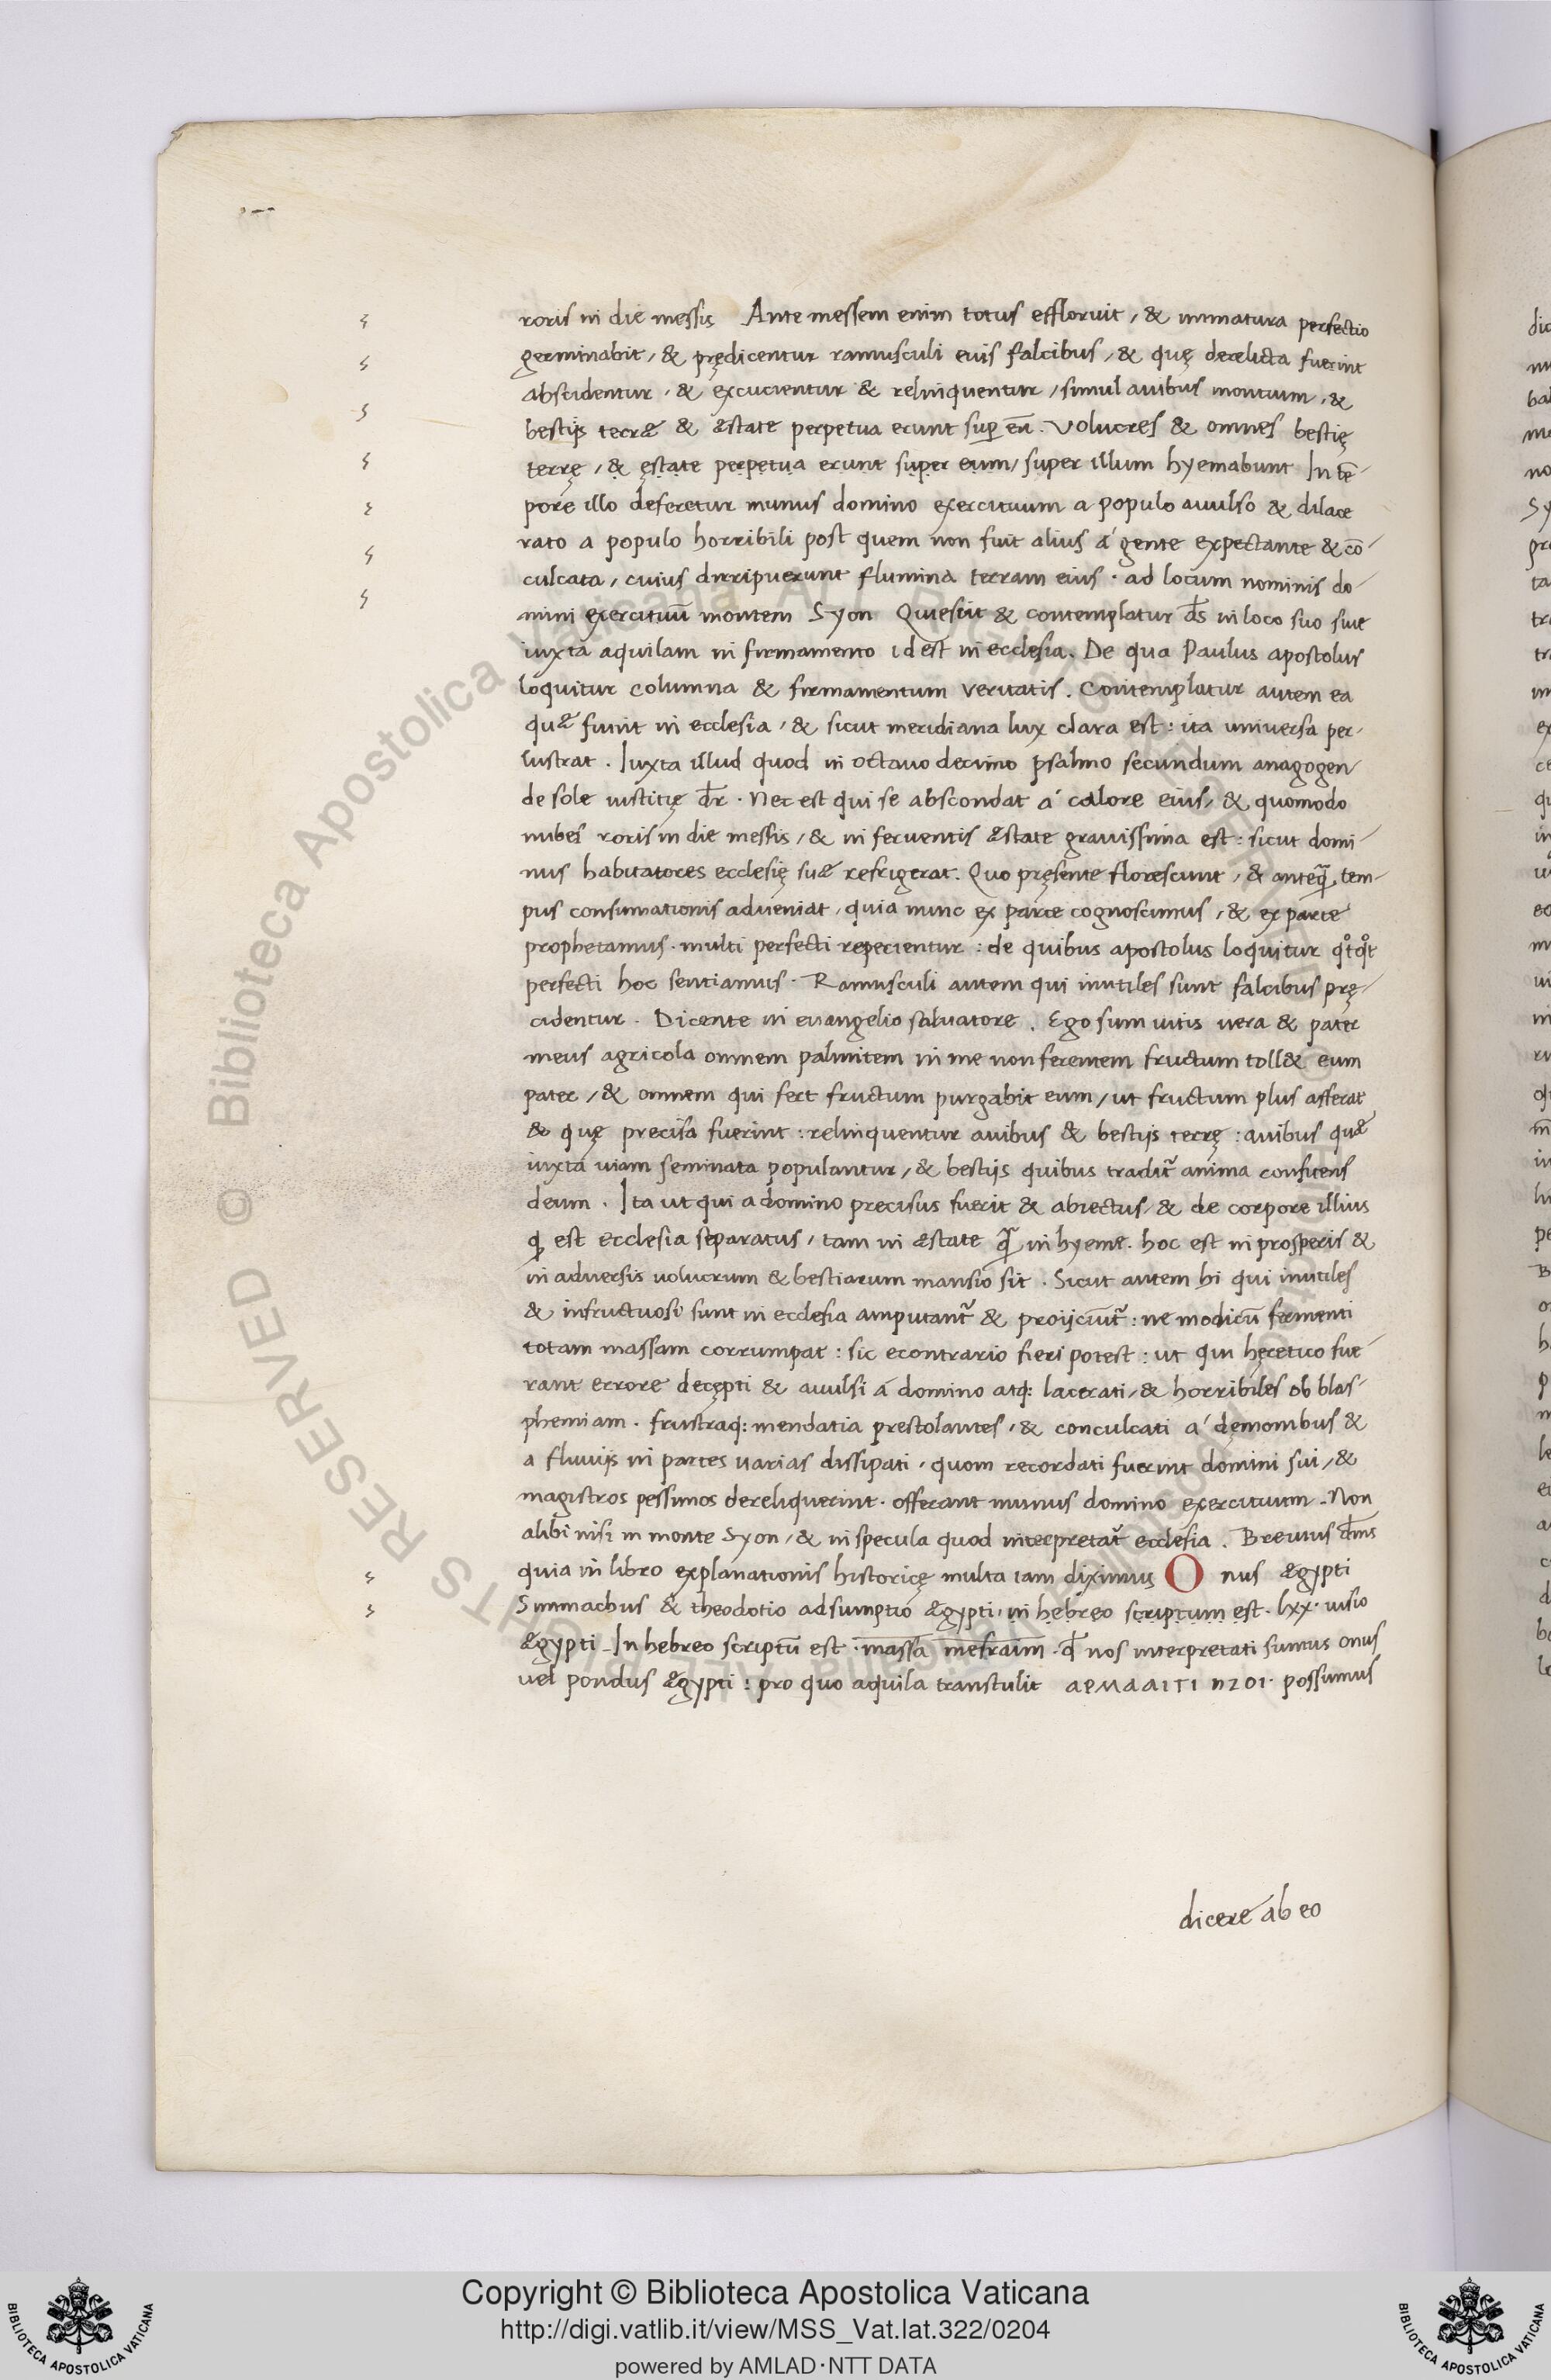 roris in die messis Ante messem enim totus effloruit, & inmatura perfectio
germinabit, & pręcidentur ramusculi eius falcibus, & quę derelicta fuerint
abscidentur, & excucientur & relinquentur, simul auibus montium, &
bestijs terræ & æstate perpetua erunt sup eū. Volucres & omnes bestię
terrę, & ęstate perpetua erunt super eum, super illum hyemabunt In tē-
pore illo deferetur munus domino exercituum a populo auulso & dilace
rato a populo horribili post quem non fuit alius á gente expectante & cō-
culcata, cuius dirripuerunt flumina terram eius. ad locum nominis do-
mini exercituū montem Syon Quiescit & contemplatur dś in loco suo siue
iuxta aquilam in firmamento id est in ecclesia. De qua Paulus apostolus
loquitur columna & firmamentum veritatis. Contemplatur autem ea
quæ sunt in ecclesia, & sicut meridiana lux clara est: ita universa per-
lustrat. Iuxta illud quod in octauo decimo psalmo secundum anagogen
de sole iustitię dr̄. Nec est qui se abscondat á calore eius, & quomodo
nubes roris in die messis, & in ferventis æstate gravissima est: sicut domi-
nus habitatores ecclesię suæ refrigerat. Quo pręsente florescunt, & anteq̄ tem-
pus consumationis adveniat, quia nunc ex parte cognoscimus, & ex parte
prophetamus. multi perfecti reperientur: de quibus apostolus loquitur qͦtqͦt
perfecti hoc sentiamus. Ramusculi autem qui inutiles sunt falcibus prę-
cidentur. Dicente in evangelio salvatore. Ego sum uitis vera & pater
meus agricola omnem palmitem in me non ferentem fructum toll& eum
pater, & omnem qui fert fructum purgabit eum, ut fructum plus afferat
& quę precisa fuerint: relinquentur auibus & bestijs terrę: auibus quæ
iuxta viam seminata populantur, & bestijs quibus tradit̃ anima confitens
deum. Ita ut qui a domino precisus fuerit & abiectus, & de corpore illius
q̨ est ecclesia separatus, tam in æstate q̄ in hyeme. hoc est in prosperis &
in adversis volucrum & bestiarum mansio sit. Sicut autem hi qui inutiles
& infructuosi sunt in ecclesia amputant̃ & proijciūt̃: ne modicū fermenti
totam massam corrumpat: sic econtrario fieri potest: ut qui hęretico fue
rant errore decępti & auulsi á domino atq: lacerati, & horribiles ob blas-
phemiam. frustraq: mendatia prestolantes, & conculcati á dęmonibus &
a fluuijs in partes varias dissipati, quom recordati fuerint domini sui, &
magistros pessimos dereliquerint. offerant munus domino exercituum. Non
alibi nisi in monte Syon, & in specula quod interpretat̃ ecclesia. Brevius dm̄s
quia in libro explanationis historicę multa iam diximus O nus ægypti
Simmachus & theodotio adsumptio ægypti, in hebreo scriptum est. lxx. uisio
ægypti. In hebreo scriptū est. massa mesraim. qd̄ nos interpretati sumus onus
vel pondus ægypti: pro quo aquila transtulit possumus
dicere ab eo
Copyright © Biblioteca Apostolica Vaticana
http://digi.vatlib.it/view/MSS_Vat.lat.322/0204
powered by AMLAD·NTT DATA